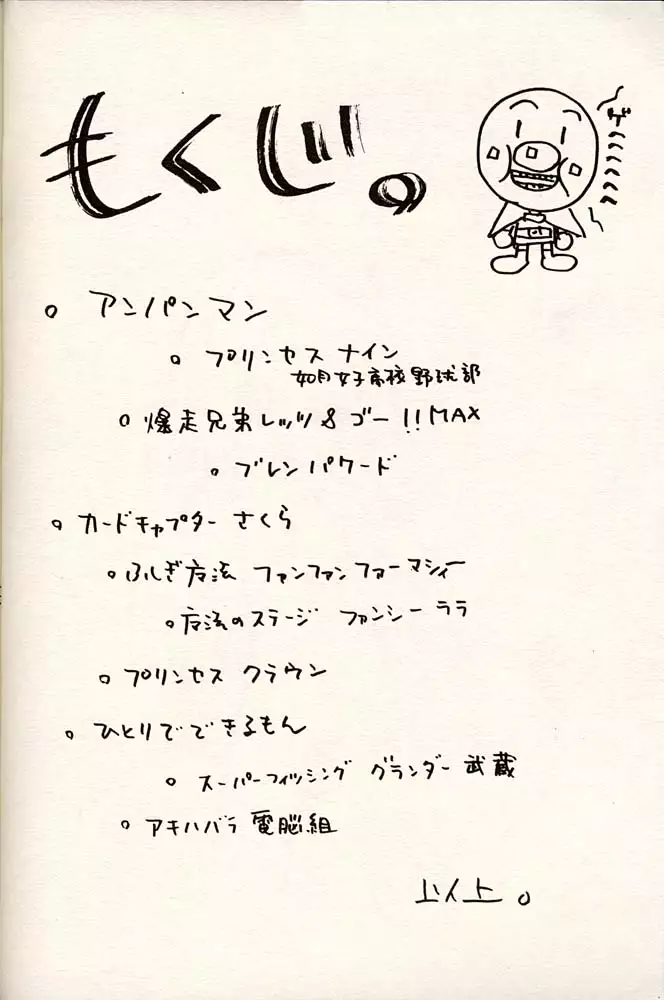 もくじ。
ゲへへへへへ
。アンパンマン
。プリンセス ナイン
如月女子高校野球部
。爆走兄弟レッツ&ゴー!!MAX
。ブレンパワード
。カードキャプター さくら
。ふしぎ魔法 ファンファンファーマシィー
。魔法のステージ ファンシーララ
。プリンセス クラウン
。ひとりでできるもん
。スーパーフィッシング グランダー武蔵
。アキハバラ電脳組
以上。